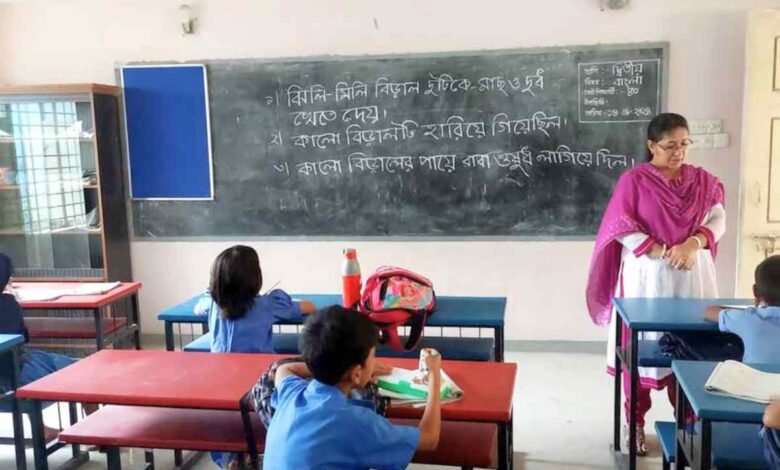 ১। ঝিলি-মিলি বিড়াল দুটিকে মাছ ও দুধ
খেতে দেয়।
২। কালো বিড়ালটি হারিয়ে গিয়েছিল।
৩। কালো বিড়ালের পায়ে বাবা ওষুধ লাগিয়ে দিল।
শ্রেণি :- দ্বিতীয়
বিষয় :- বাংলা
মোট শিক্ষার্থী :- ৪০
উপস্থিতি :-